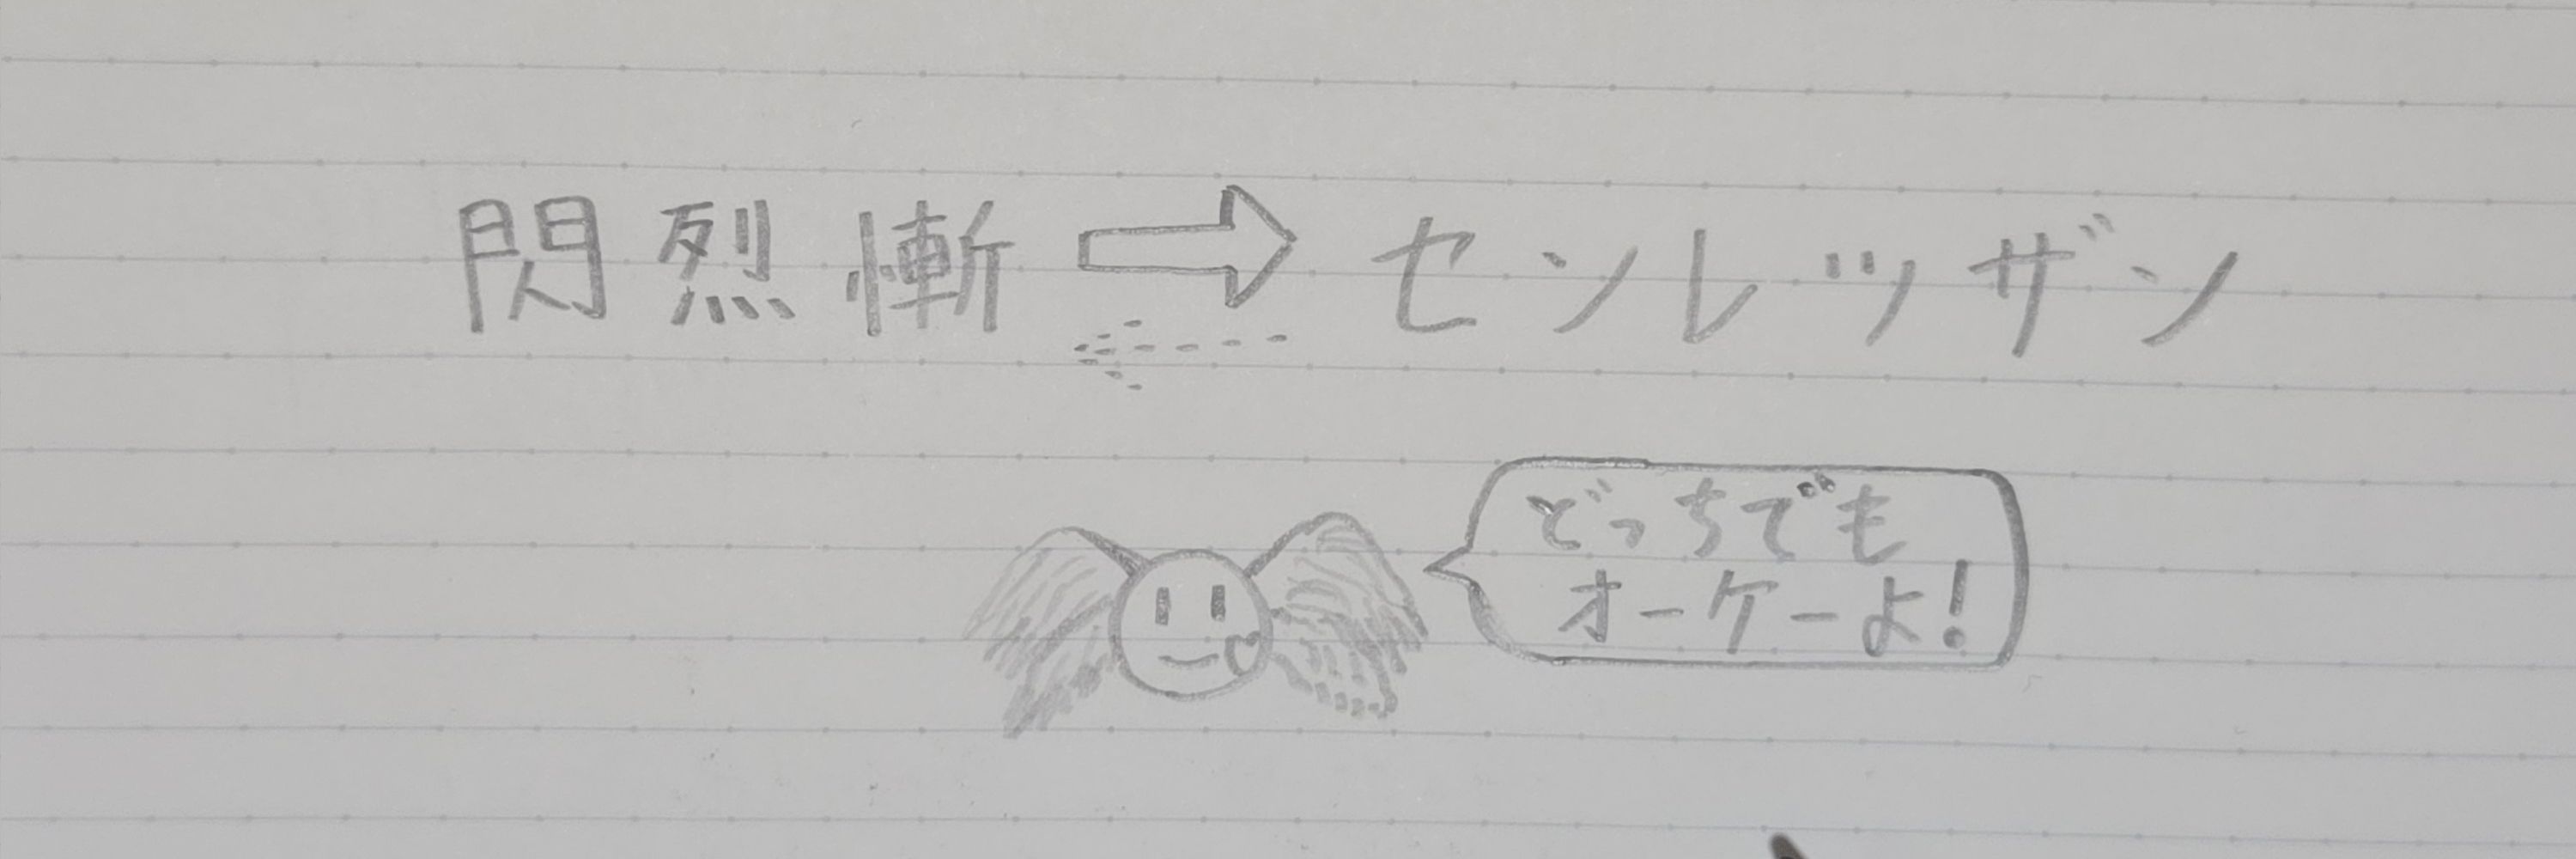 閃烈慚⇨センレツザン
どっちでも
オーケーよ!